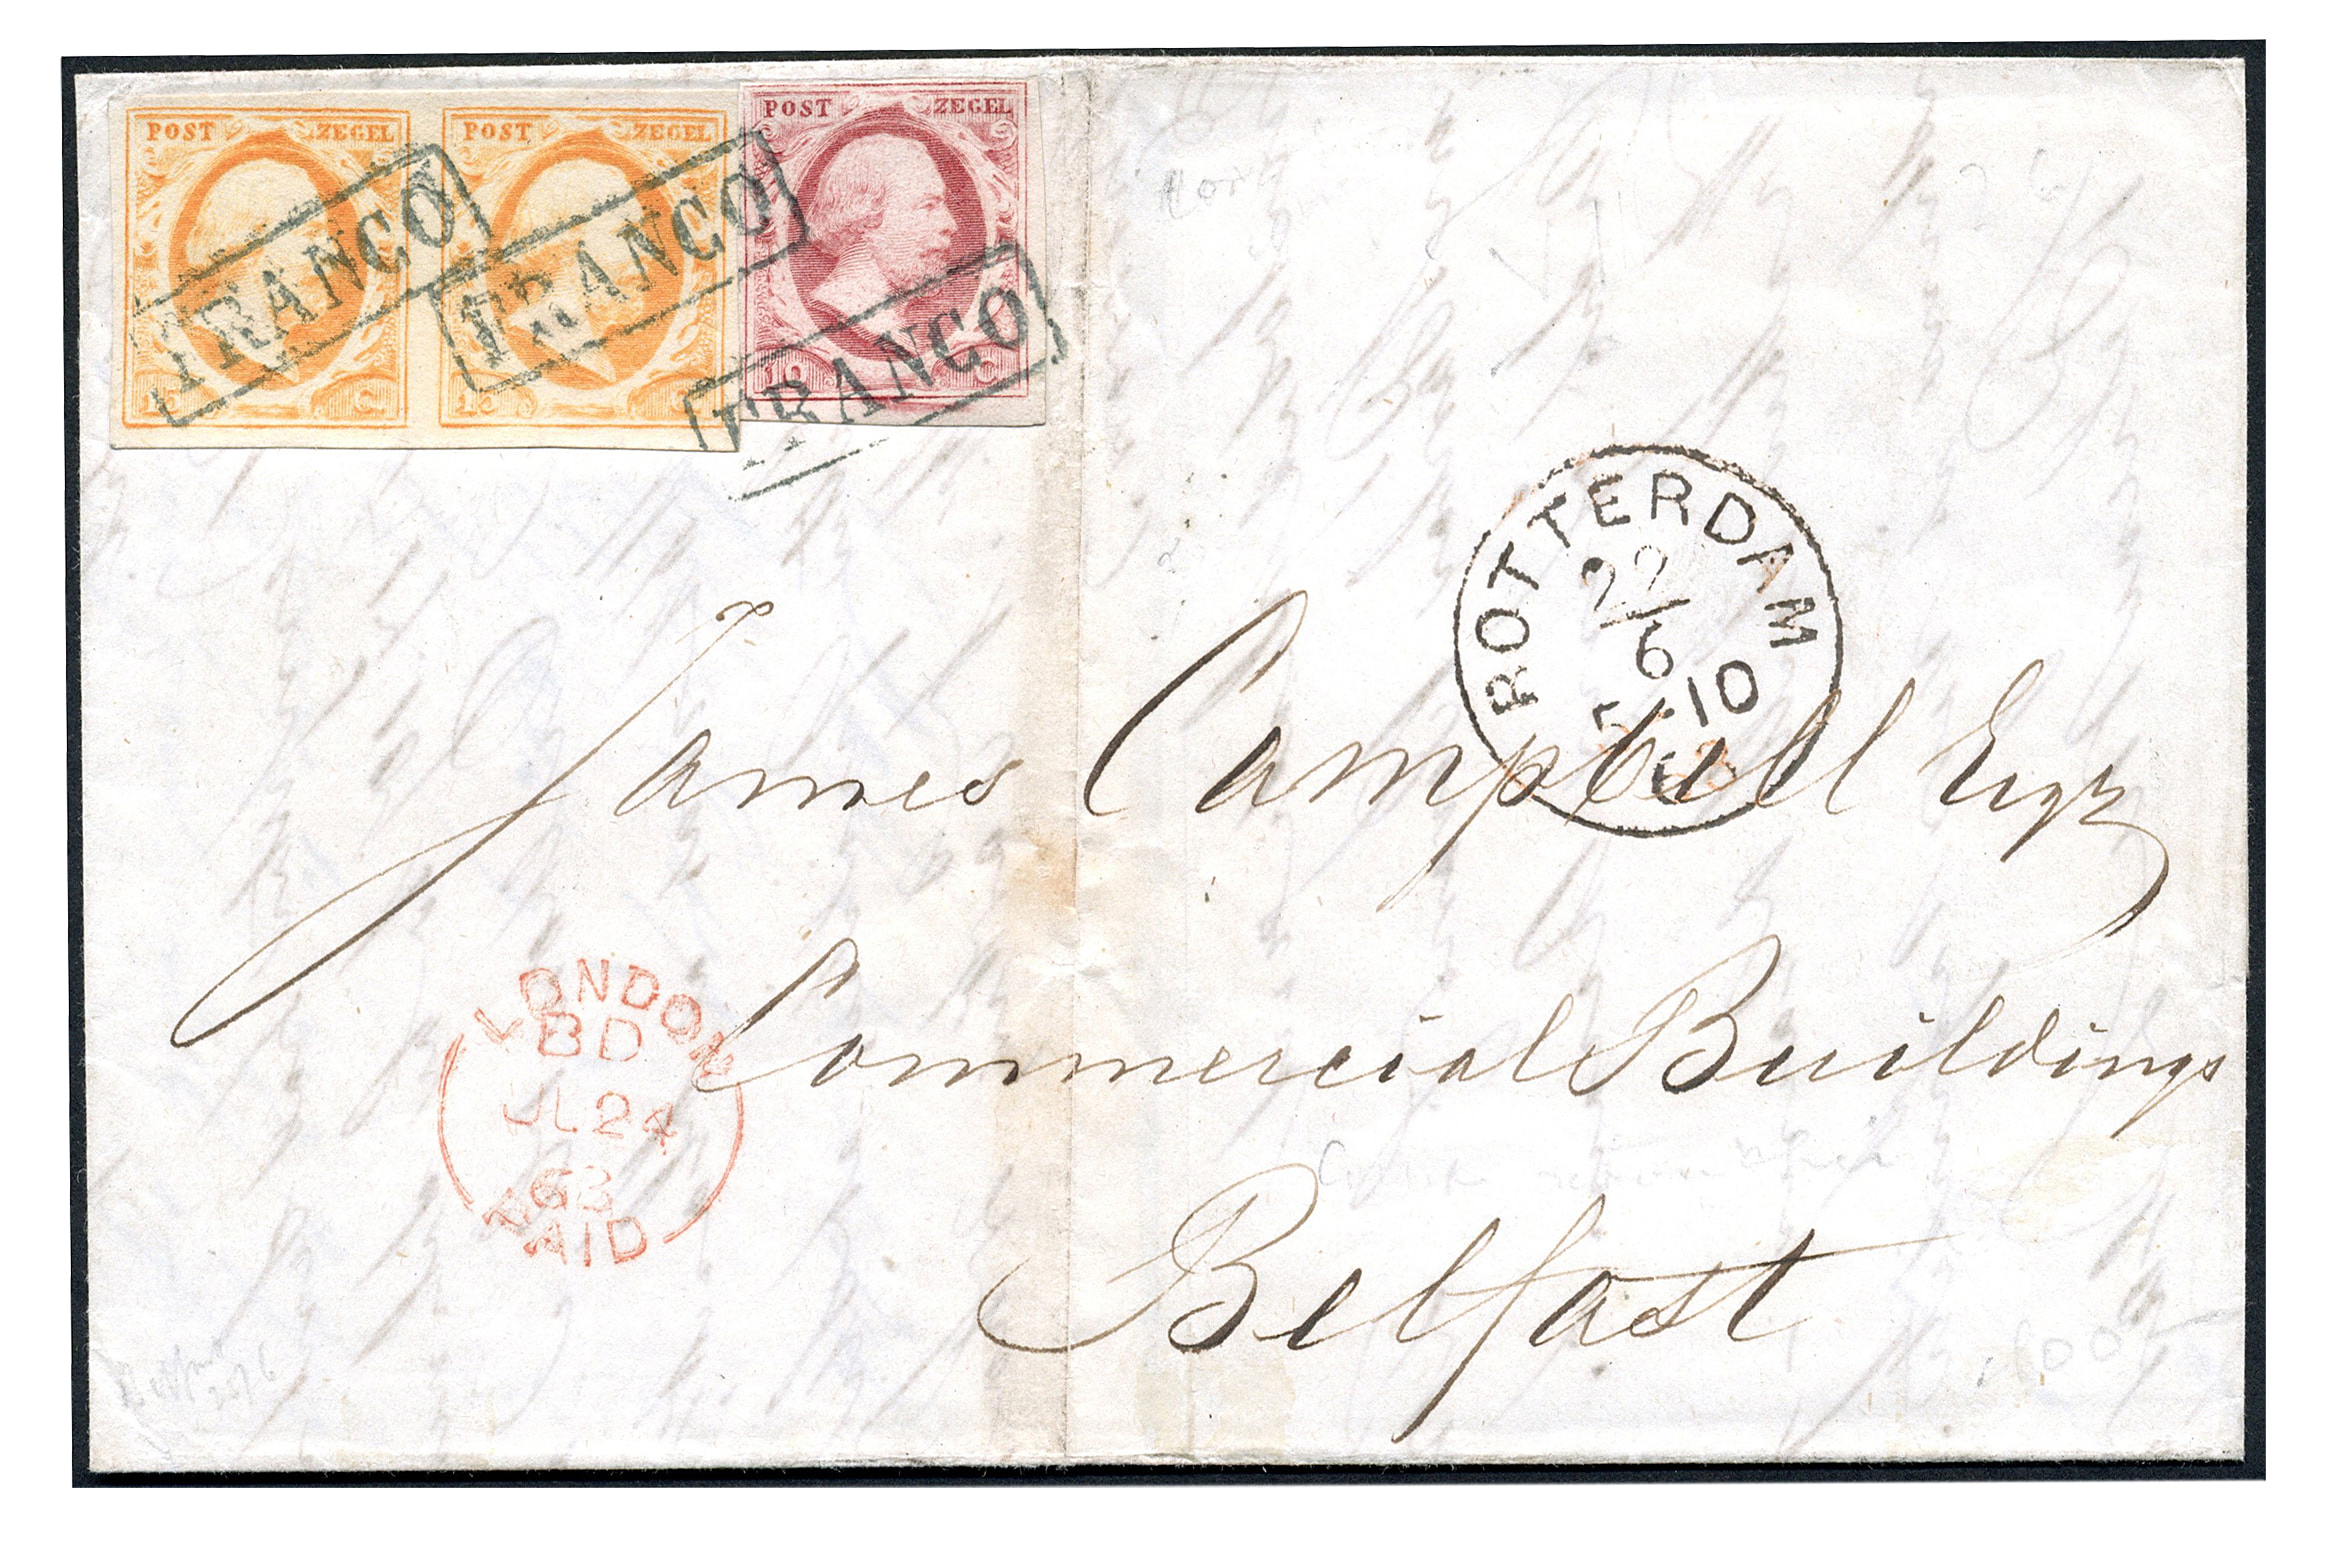 POST ZEGEL POST ZEGEL POST ZEGEL
FRANCO FRANCO FRANCO
10 C
ROTTERDAM
22
6
-10
James Campbell Esqr
Commercial Buildings
Belfast
LONDON
BD
JL 24
63
PAID